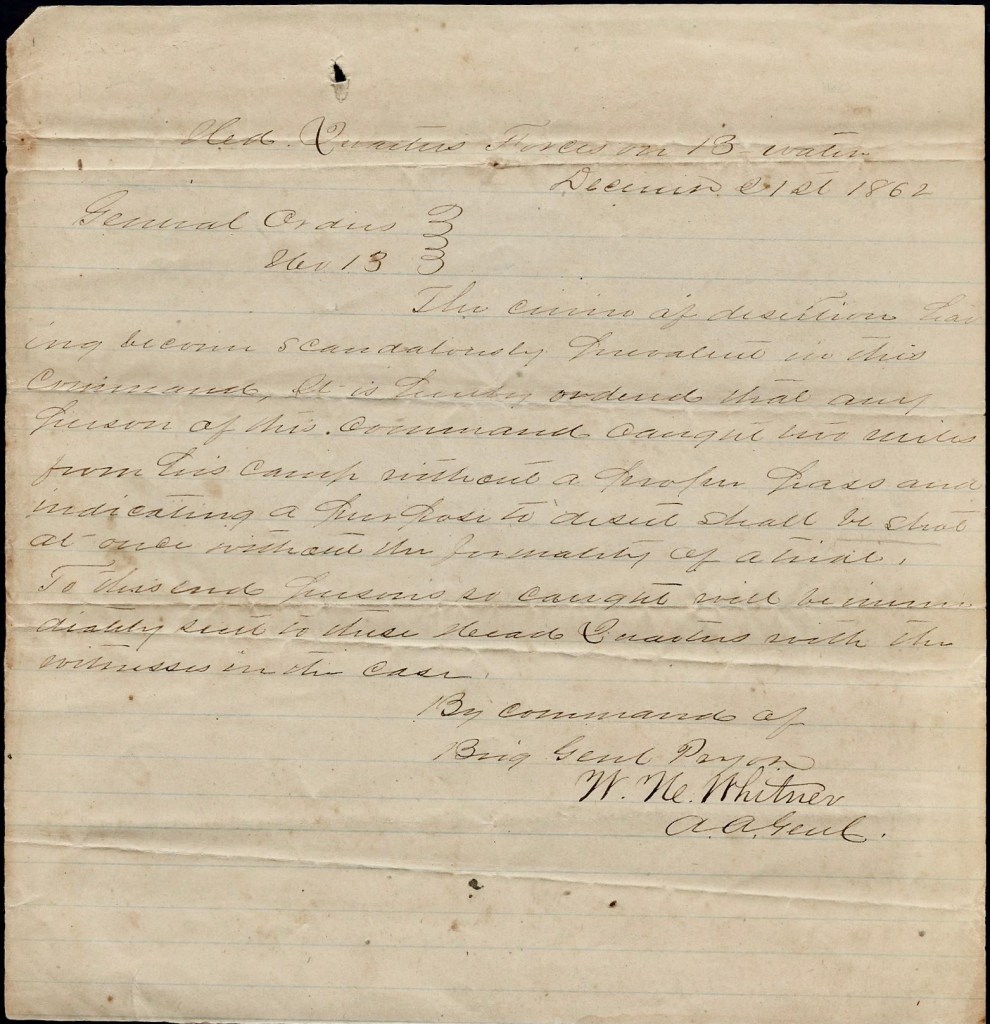 Hed. Quarters Forces on B water
December 21st 1862
General Orders
No 13
The crime of desertion hav
ing become scandalously prevalent in this
command, It is hereby ordered that any
person of this command caught two miles
from his camp without a proper pass and
indicating a purpose to desert shall be shot
at once without the formality of a trial.
To this end persons so caught will be imme
diatly sent to these Head Quarters with the
witnesses in the case.
By command of
Brig Genl Pryor
W. H. Whitner
A. A. Genl.